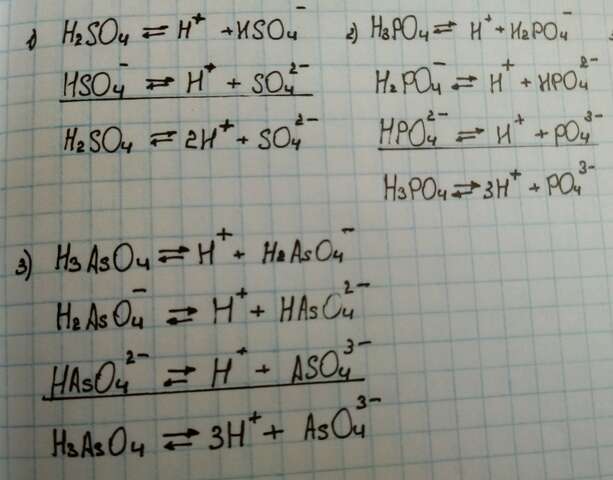 1) H₂SO₄ ⇌ H⁺ + HSO₄⁻
HSO₄⁻ ⇌ H⁺ + SO₄²⁻
H₂SO₄ ⇌ 2H⁺ + SO₄²⁻
2) H₃PO₄ ⇌ H⁺ + H₂PO₄⁻
H₂PO₄⁻ ⇌ H⁺ + HPO₄²⁻
HPO₄²⁻ ⇌ H⁺ + PO₄³⁻
H₃PO₄ ⇌ 3H⁺ + PO₄³⁻
3) H₃AsO₄ ⇌ H⁺ + H₂AsO₄⁻
H₂AsO₄⁻ ⇌ H⁺ + HAsO₄²⁻
HAsO₄²⁻ ⇌ H⁺ + ASO₄³⁻
H₃AsO₄ ⇌ 3H⁺ + AsO₄³⁻